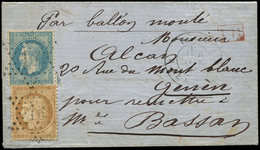 Par ballon monté
Monsieur
Alcan
20 Rue du Mont blanc
Genève
pour remettre à
Mr Bassan